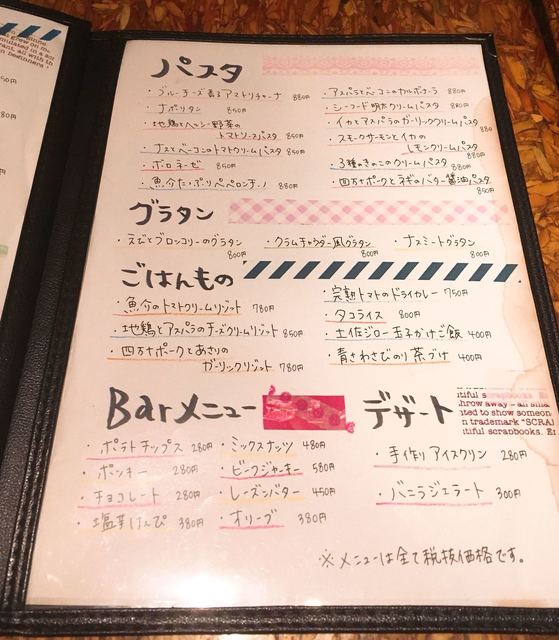 パスタ
・ブルーチーズ香るアマトリチャーナ 880円
・ナポリタン 850円
・地鶏とヘルシー野菜の
トマトソースパスタ 850円
・ナスとベーコンのトマトクリームパスタ 850円
・ボロネーゼ 850円
・魚介たっぷりペペロンチーノ 880円
・アスパラとベーコンのカルボナーラ 880円
・シーフード明太クリームパスタ 880円
・イカとアスパラのガーリッククリームパスタ 880
・スモークサーモンとイカの
レモンクリームパスタ 880円
・3種のきのこのクリームパスタ 880円
・四万十ポークとネギのバター醤油パスタ 850円
グラタン
・えびとブロッコリーのグラタン 800円
・クラムチャウダー風グラタン 800円
・ナスミートグラタン 800円
ごはんもの
・魚介のトマトクリームリゾット 780円
・地鶏とアスパラのチーズクリームリゾット 850円
・四万十ポークとあさりの
ガーリックリゾット 780円
・完熟トマトのドライカレー 750円
・タコライス 800円
・土佐ジロー玉子かけご飯 400円
・青さわさびのり茶づけ 400円
Barメニュー
・ポテトチップス 280円
・ポッキー 280円
・チョコレート 280円
・塩芋けんぴ 380円
・ミックスナッツ 480円
・ビーフジャーキー 580円
・レーズンバター 450円
・オリーブ 380円
デザート
・手作りアイスクリン 280円
・バニラジェラート 300円
※メニューは全て税抜価格です。